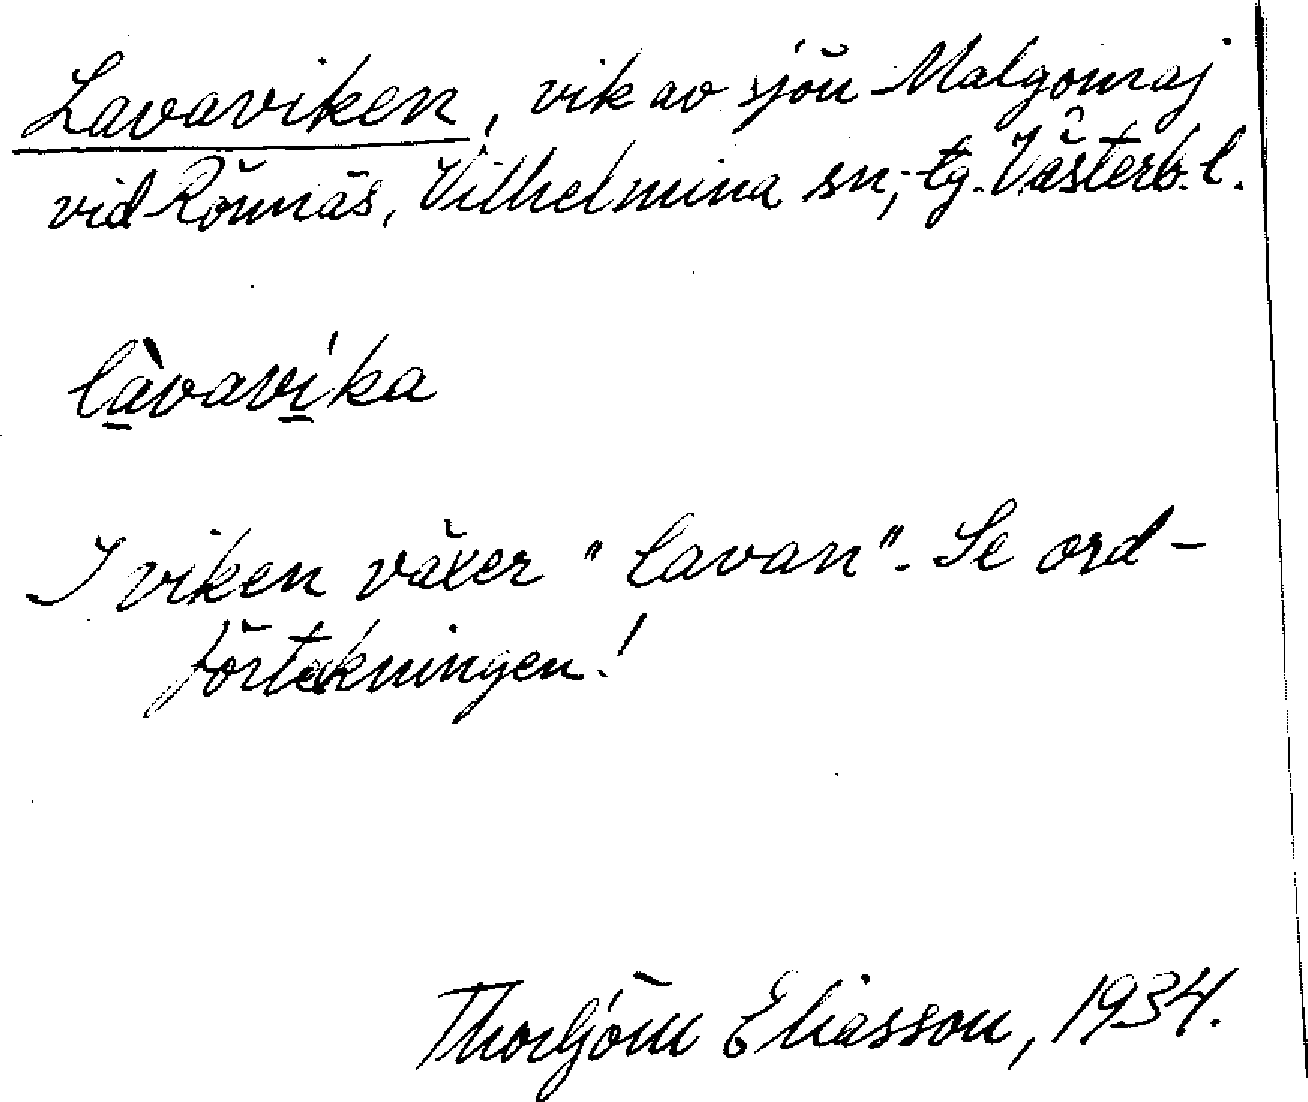 Lavaviken, vik av sjön Malgomaj
vid Rönnäs, Vilhelmina sn, tg. Västerb. l.
làvavíka
I viken växer "lavan". Se ord-
förtekningen!
Thorbjörn Eliasson, 1934.